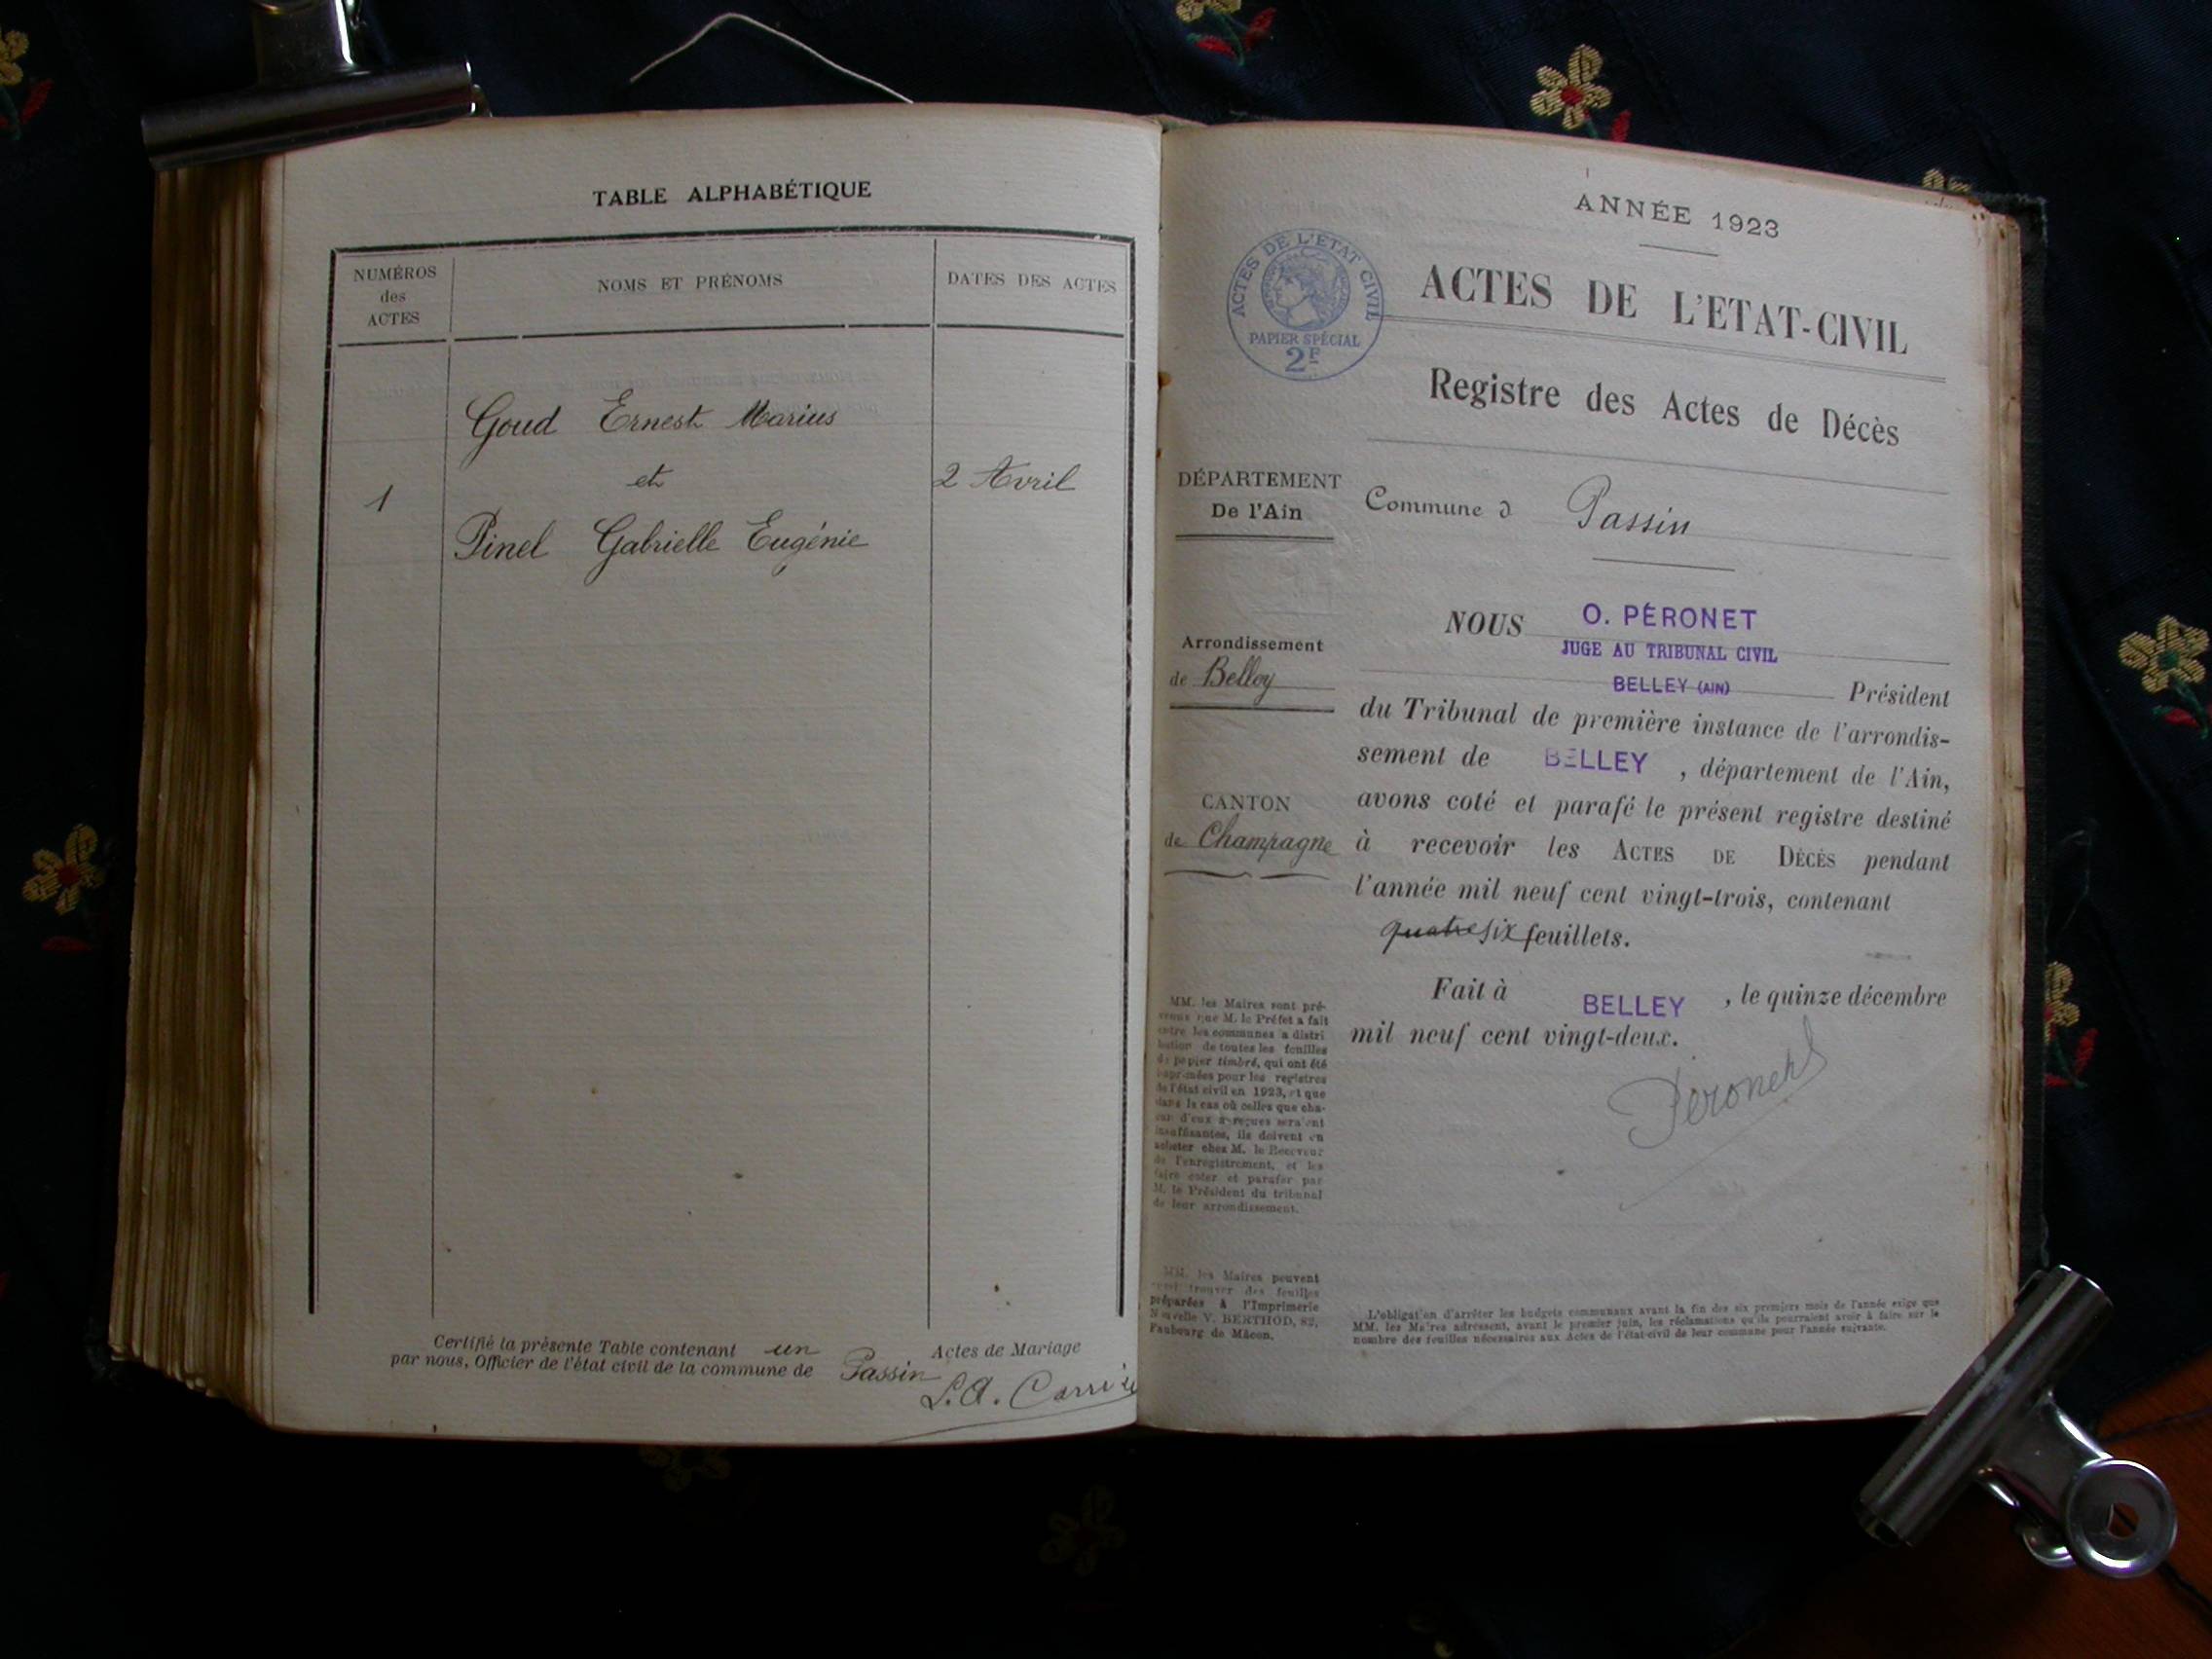 TABLE ALPHABÉTIQUE
NUMÉROS
des
ACTES
NOMS ET PRÉNOMS
DATES DES ACTES
Goud Ernest Marius
et
1
2 Avril
Pinel Gabrielle Eugénie
Certifié la présente Table contenant un Actes de Mariage
par nous, Officier de l'état civil de la commune de Passin
L.A.
ANNÉE 1923
ACTES DE L'ETAT CIVIL
PAPIER SPÉCIAL
2F
ACTES DE L'ETAT-CIVIL
Registre des Actes de Décès
DÉPARTEMENT
De l'Ain
Commune d Passin
Arrondissement
de Belley
CANTON
de Champagne
NOUS O. PÉRONET
JUGE AU TRIBUNAL CIVIL
BELLEY (AIN) Président
du Tribunal de première instance de l'arrondis-
sement de BELLEY , département de l'Ain,
avons coté et parafé le présent registre destiné
à recevoir les ACTES DE DÉCÈS pendant
l'année mil neuf cent vingt-trois, contenant
quatre six feuillets.
Fait à BELLEY , le quinze décembre
mil neuf cent vingt-deux.
Péronet
MM. les Maires sont pré-
venus que M. le Préfet a fait
entre les communes a distri
bution de toutes les feuilles
de papier timbré, qui ont été
imprimées pour les registres
de l'état civil en 1923, et que
dans le cas où celles que cha-
cun d'eux a reçues seraient
insuffisantes, ils doivent en
acheter chez M. le Receveur
de l'enregistrement, et les
faire coter et parafer par
M. le Président du tribunal
de leur arrondissement.
MM. les Maires peuvent
trouver des feuilles
préparées à l'Imprimerie
Nouvelle V. BERTHOD, 82,
Faubourg de Mâcon.
L'obligation d'arrêter les budgets communaux avant la fin des six premiers mois de l'année exige que
MM. les Maires adressent, avant le premier juin, les réclamations qu'ils pourraient avoir à faire sur le
nombre des feuilles nécessaires aux Actes de l'état-civil de leur commune pour l'année suivante.